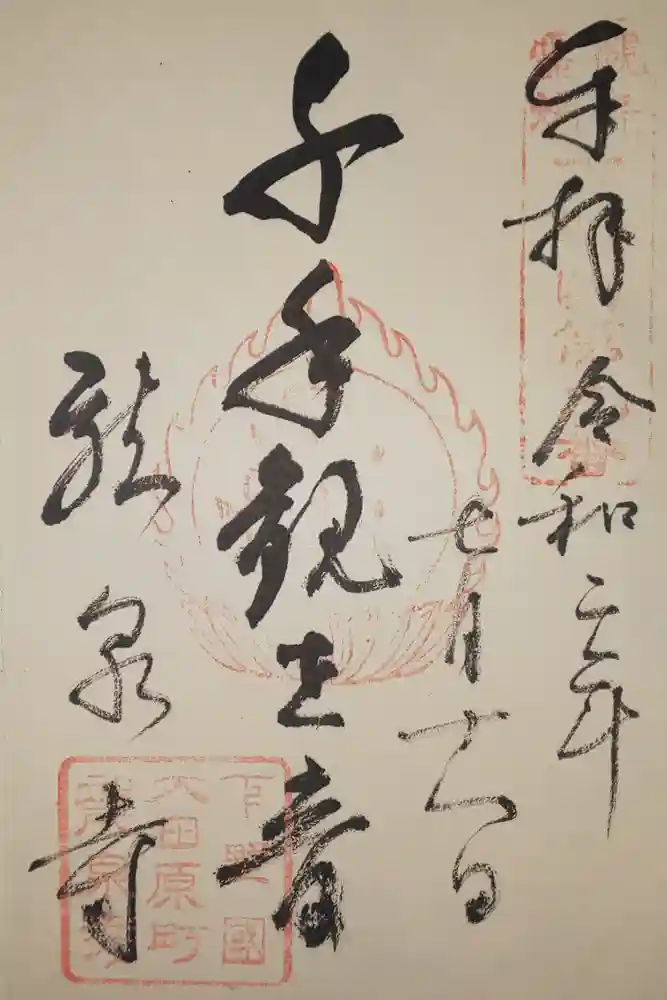 奉拝 令和二年
七月十六日
千手観世音
龍泉寺
下野國
大田原町
龍泉寺